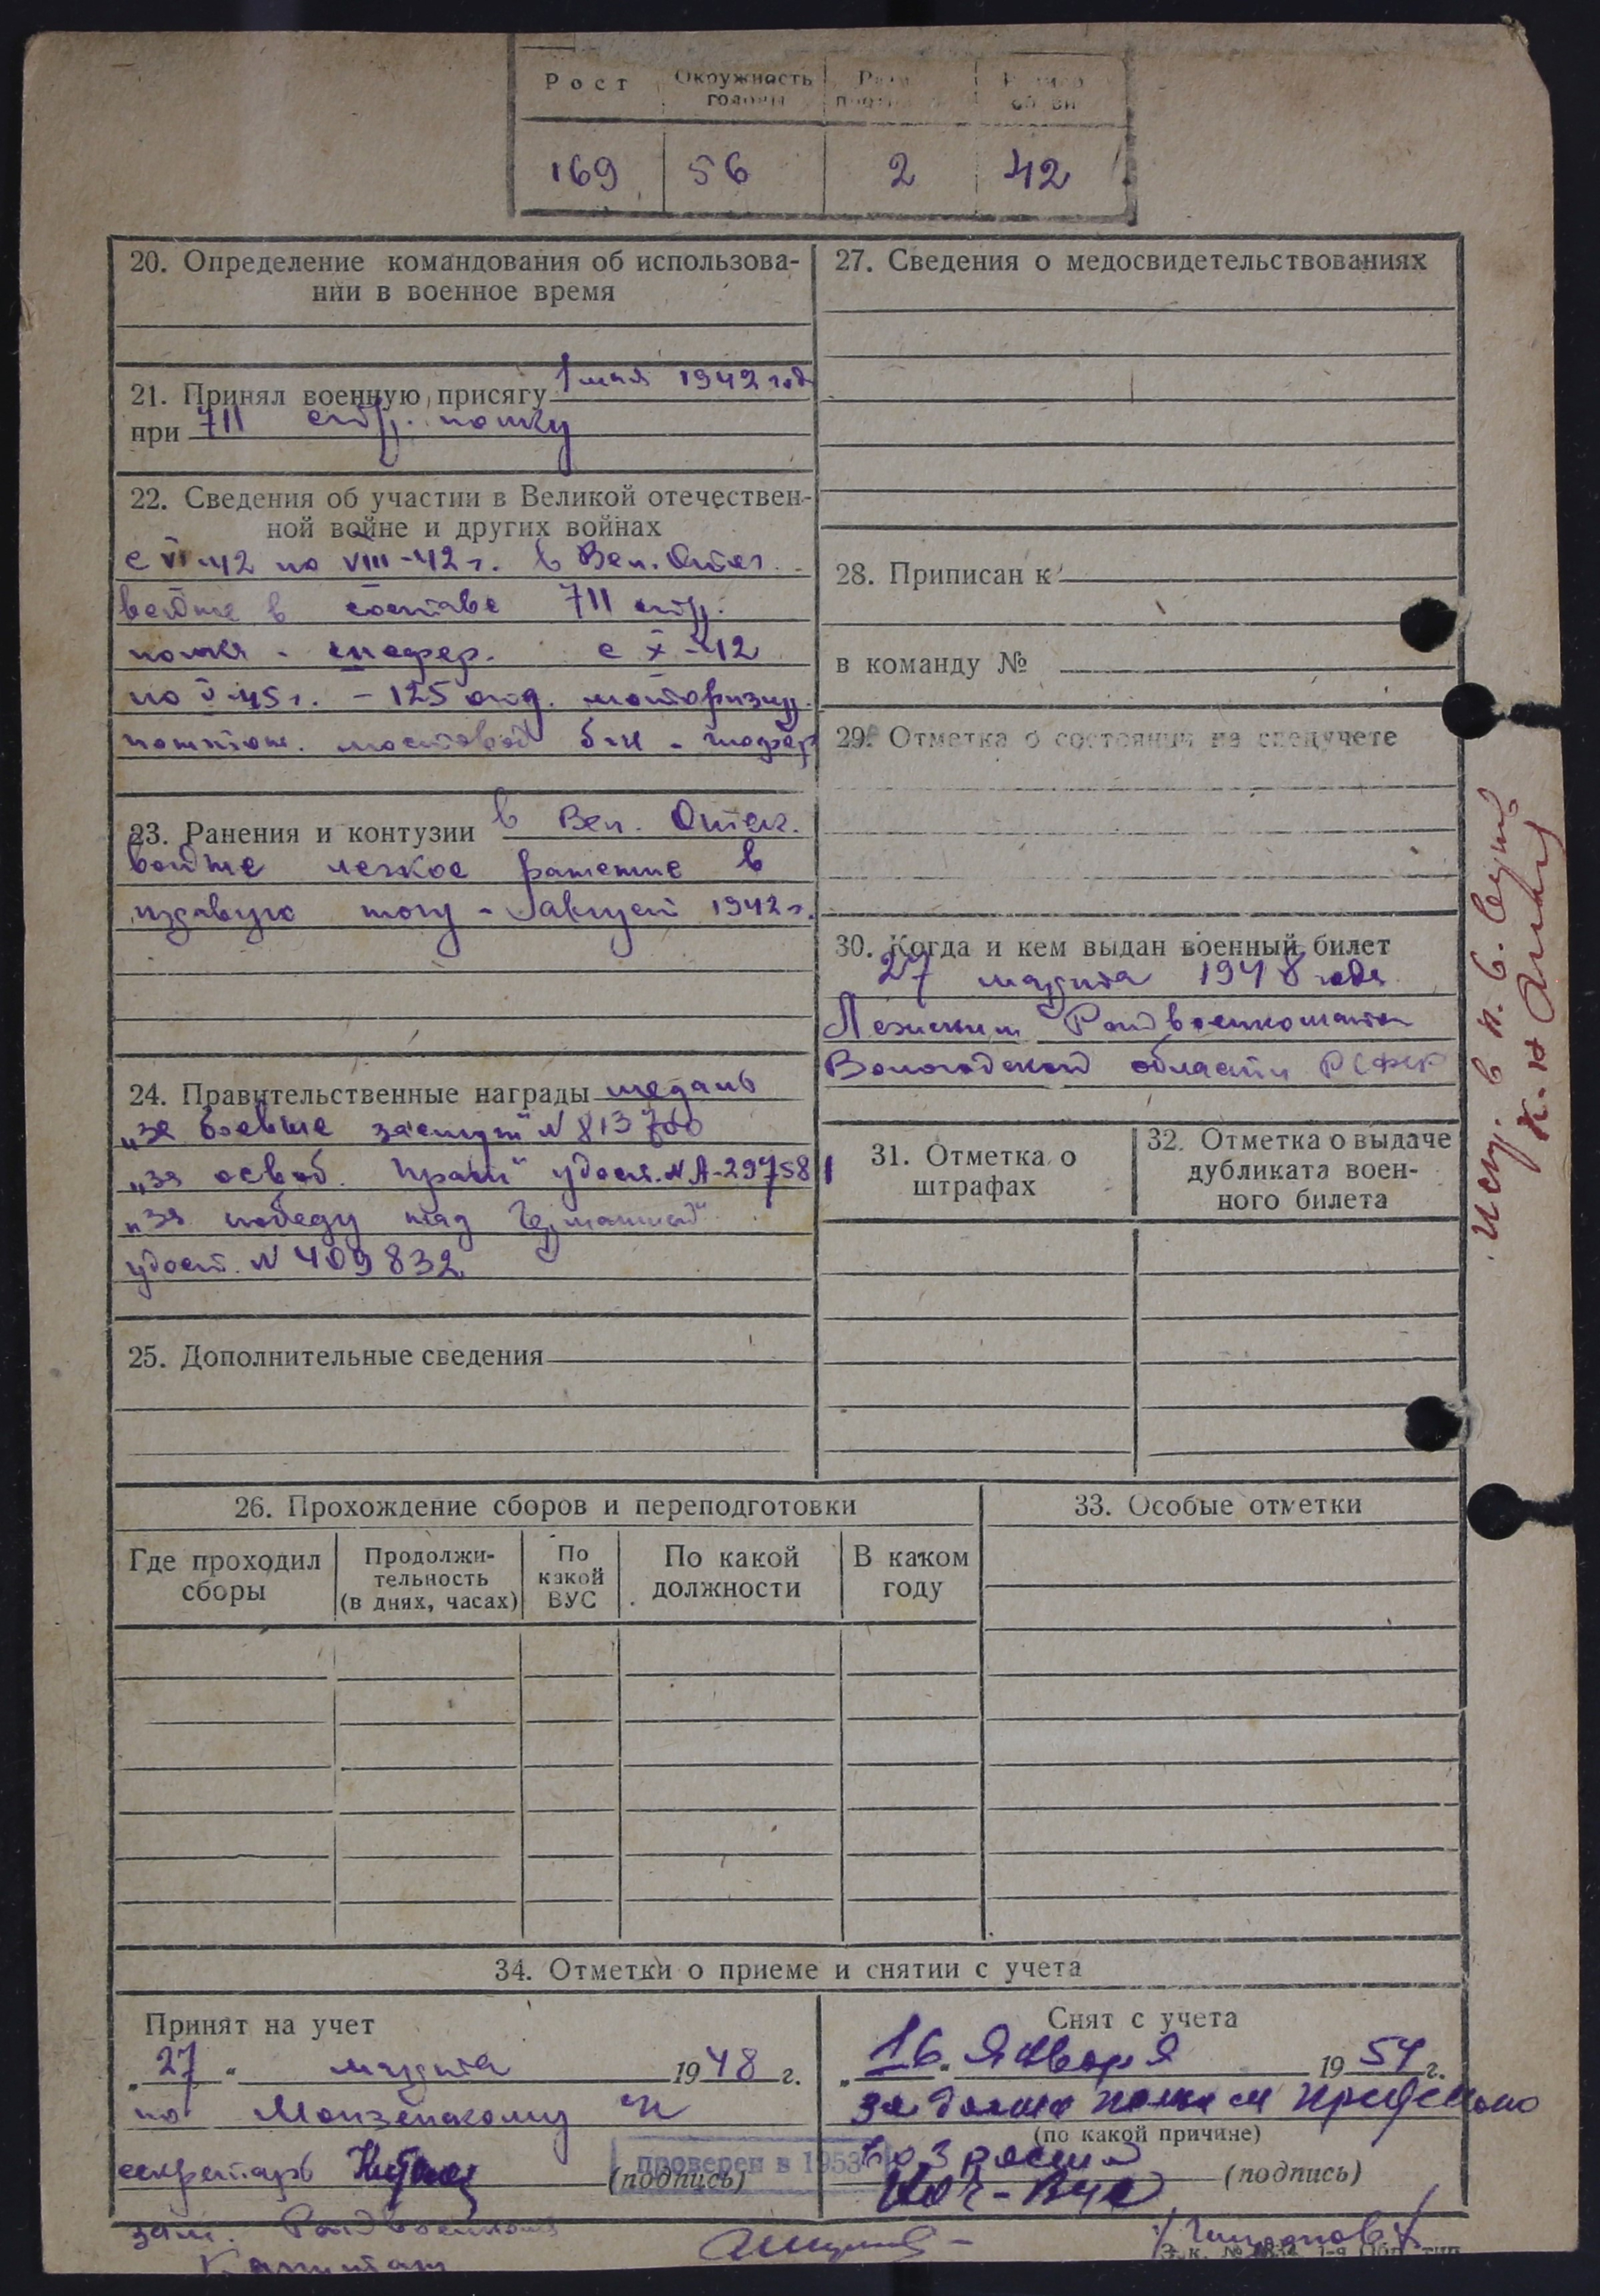 Рост Окружность головы
169 56 2 42
20. Определение командования об использова-
нии в военное время
21. Принял военную присягу 1 мая 1942 год
при 711 стр. полку
22. Сведения об участии в Великой отечествен-
ной войне и других войнах
с VI-42 по VIII-42 г. в Вел. Отеч.
войне в составе 711 стр.
полка - с X-42
по V-45 г. - 125 отд. моторизир.
мостовой б-н - шофер
23. Ранения и контузии в Вел. Отеч.
войне легкое ранение в
правую ногу - август 1942 г.
24. Правительственные награды медаль
„за боевые заслуги" N 813700
„за освоб. Праги" удост. N А-297581
„за победу над Германией"
удост. N 409832
25. Дополнительные сведения
27. Сведения о медосвидетельствованиях
28. Приписан к
в команду №
29. Отметка о состоянии на спецучете
30. Когда и кем выдан военный билет
27 марта 1948 года
Лежским Райвоенкоматом
Вологодской области РСФСР
31. Отметка о
штрафах
32. Отметка о выдаче
дубликата воен-
ного билета
26. Прохождение сборов и переподготовки
Где проходил
сборы
Продолжи-
тельность
(в днях, часах)
По
какой
ВУС
По какой
должности
В каком
году
33. Особые отметки
34. Отметки о приеме и снятии с учета
Принят на учет
„27" марта 1948 г.
по Монзенскому
секретарь (подпись)
проверен в 1953
зам. Райвоенкома
Капитан
Снят с учета
„16" Января 1954 г.
предельно
(по какой причине)
возраст
(подпись)